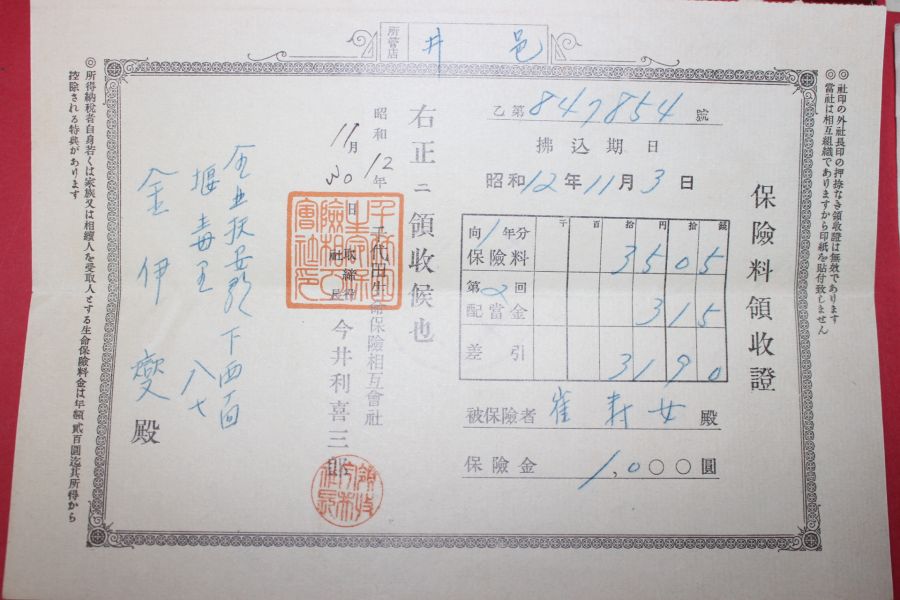 所管店 井邑
◎社印の外社長印の押捺なき領收證は無效であります
◎當社は相互組織でありますから印紙を貼付致しません
保險料領收證
乙第847854號
拂込期日
昭和12年11月3日
千 百 拾 円 拾 錢
向1年分保險料 3505
第2回配當金 315
差引 3190
被保險者 崔 女 殿
保險金 1,0〇〇圓
右正ニ領收候也
昭和12年11月30日
千代田生命保險相互會社
取締役社長 今井利喜三郎
下西面
八七
金伊 殿
◎所得納稅者自身若くは家族又は相續人を受取人とする生命保險料金は年額貳百圓迄其所得から
控除される特典があります